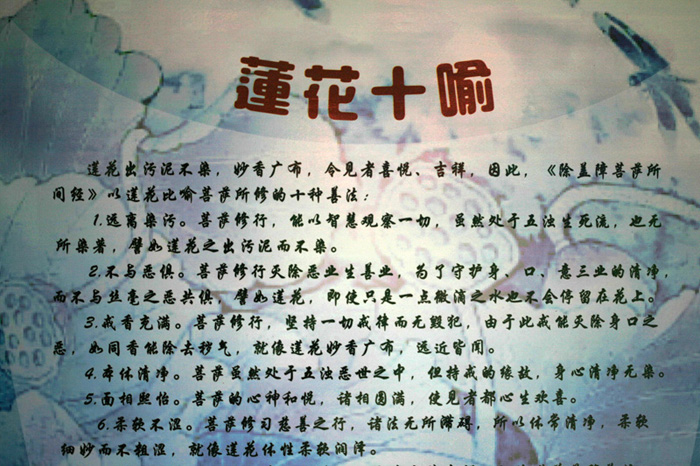 蓮花十喻
莲花出污泥不染，妙香广布，令见者喜悦、吉祥，因此，《除盖障菩萨所
问经》以莲花比喻菩萨所修的十种善法：
1.远离染污。菩萨修行，能以智慧观察一切，虽然处于五浊生死流，也无
所染著，譬如莲花之出污泥而不染。
2.不与恶俱。菩萨修行灭除恶业生善业，为了守护身、口、意三业的清净，
而不与丝毫之恶共俱，譬如莲花，即使只是一点微滴之水也不会停留在花上。
3.戒香充满。菩萨修行，坚持一切戒律而无毁犯，由于此戒能灭除身口之
恶，如同香能除去秽气，就像莲花妙香广布，远近皆闻。
4.本体清净。菩萨虽然处于五浊恶世之中，但持戒的缘故，身心清净无染。
5.面相熙怡。菩萨的心神和悦，诸相圆满，使见者都心生欢喜。
6.柔软不涩。菩萨修习慈善之行，诸法无所滞碍，所以体常清净，柔软
细妙而不粗涩，就像莲花体性柔软润泽。